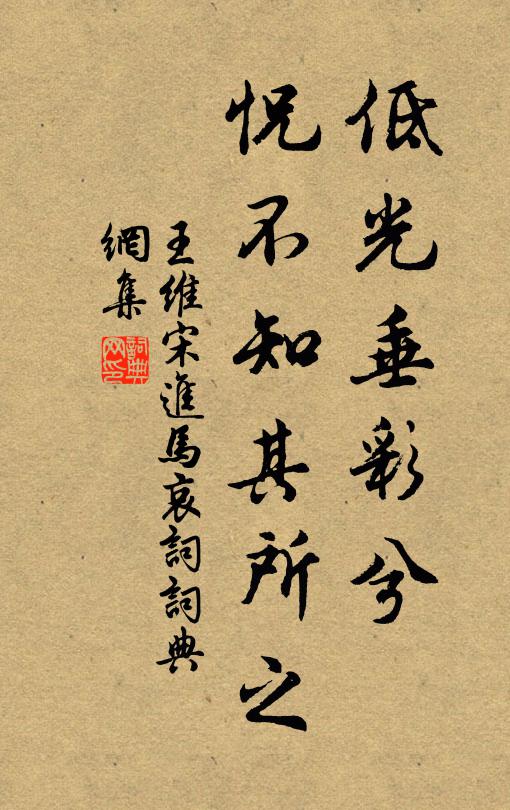 低光垂彩兮
怳不知其所之
王維宋進馬哀詞詞典
網集
詞典网印